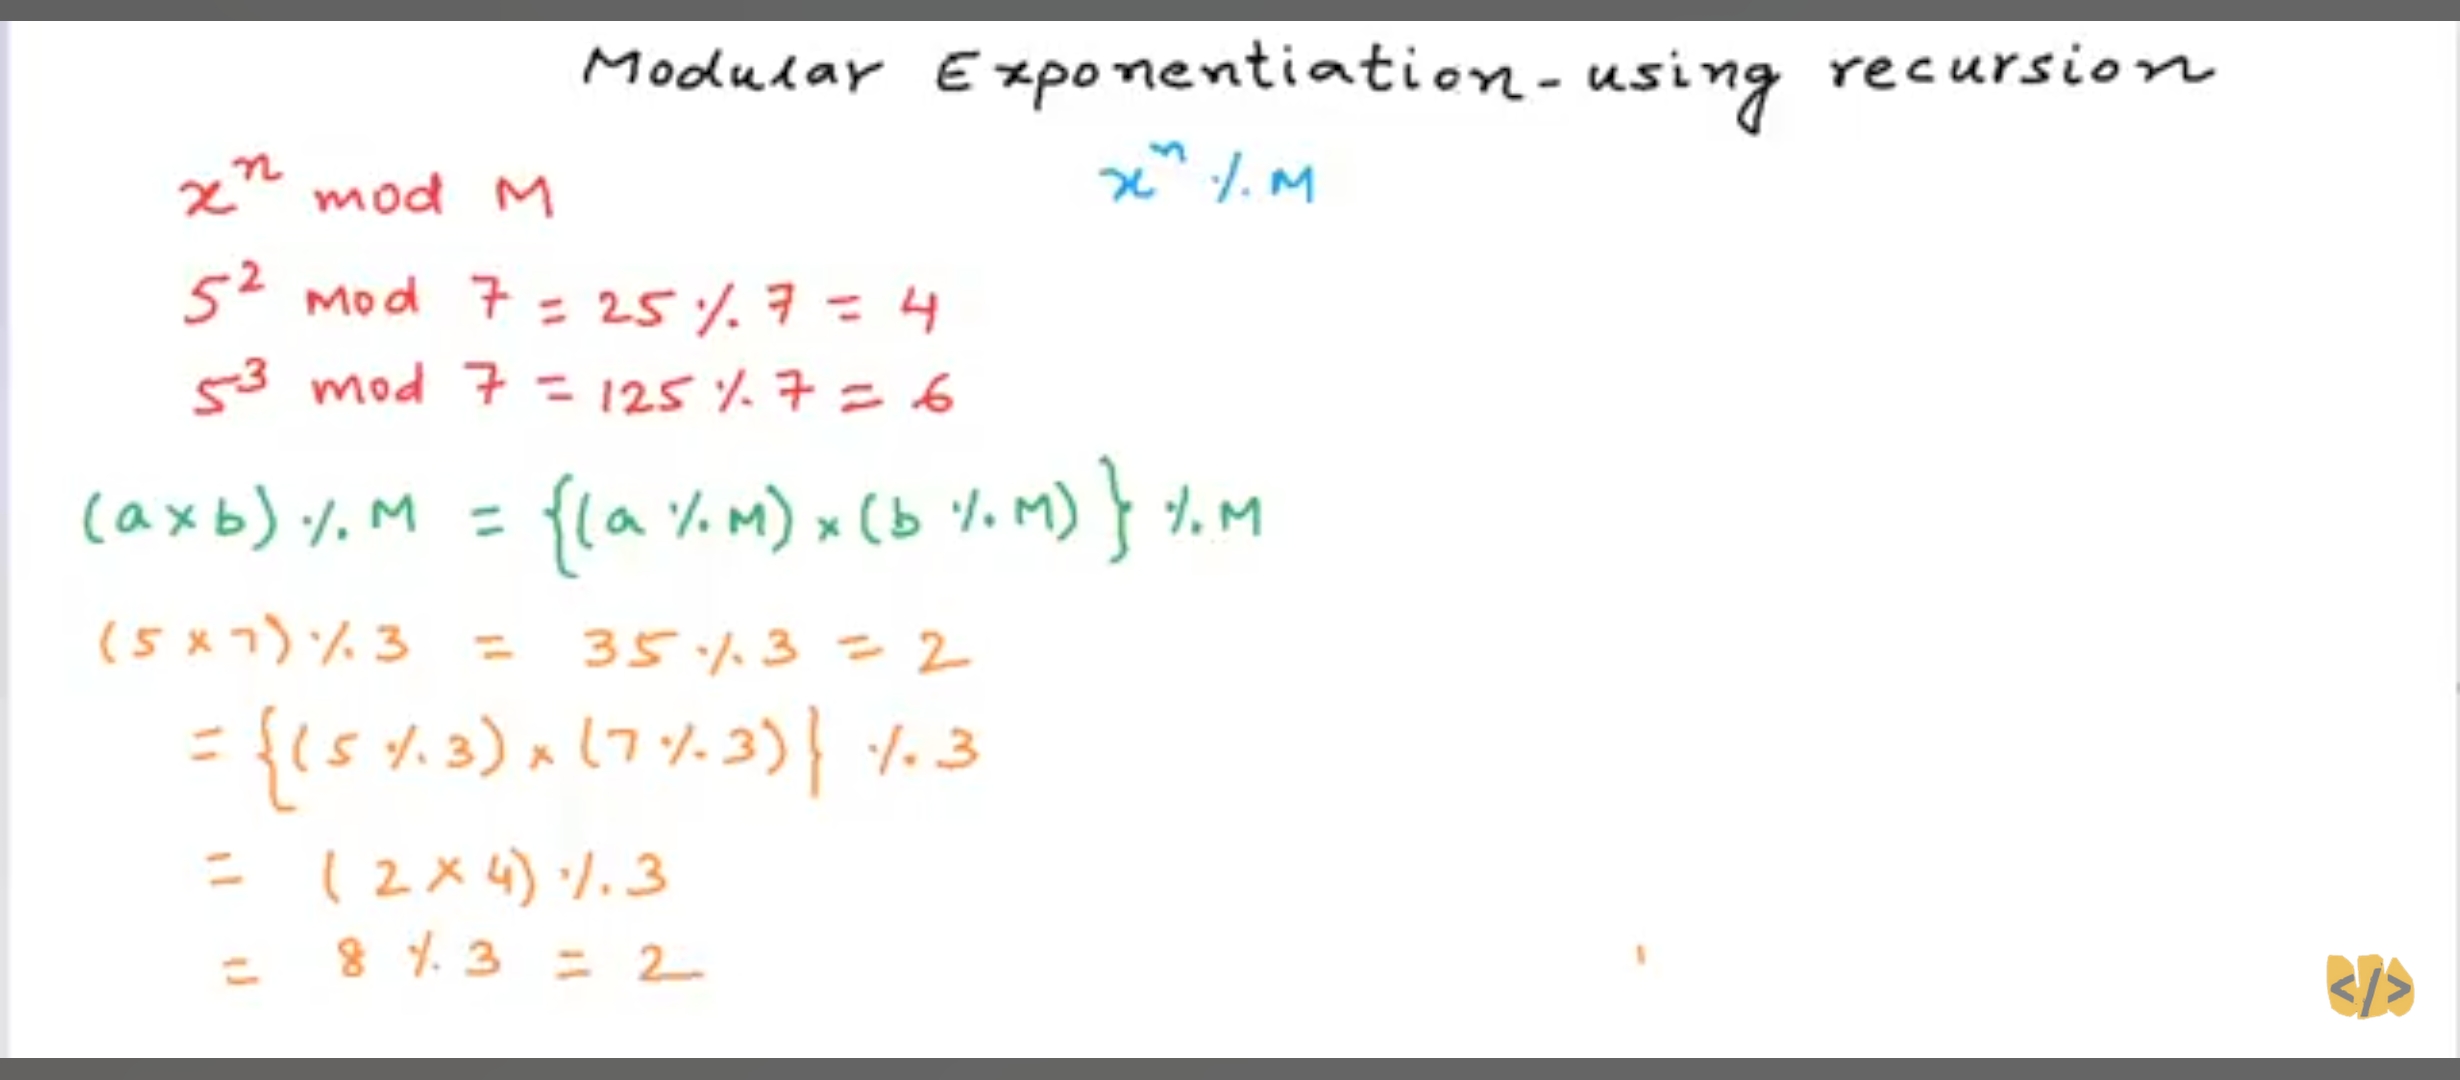 Modular Exponentiation - using recursion
xⁿ mod M
xⁿ % M
5² mod 7 = 25 % 7 = 4
5³ mod 7 = 125 % 7 = 6
(a x b) % M = {(a % M) x (b % M)} % M
(5 x 7) % 3 = 35 % 3 = 2
= {(5 % 3) x (7 % 3)} % 3
= (2 x 4) % 3
= 8 % 3 = 2
</>